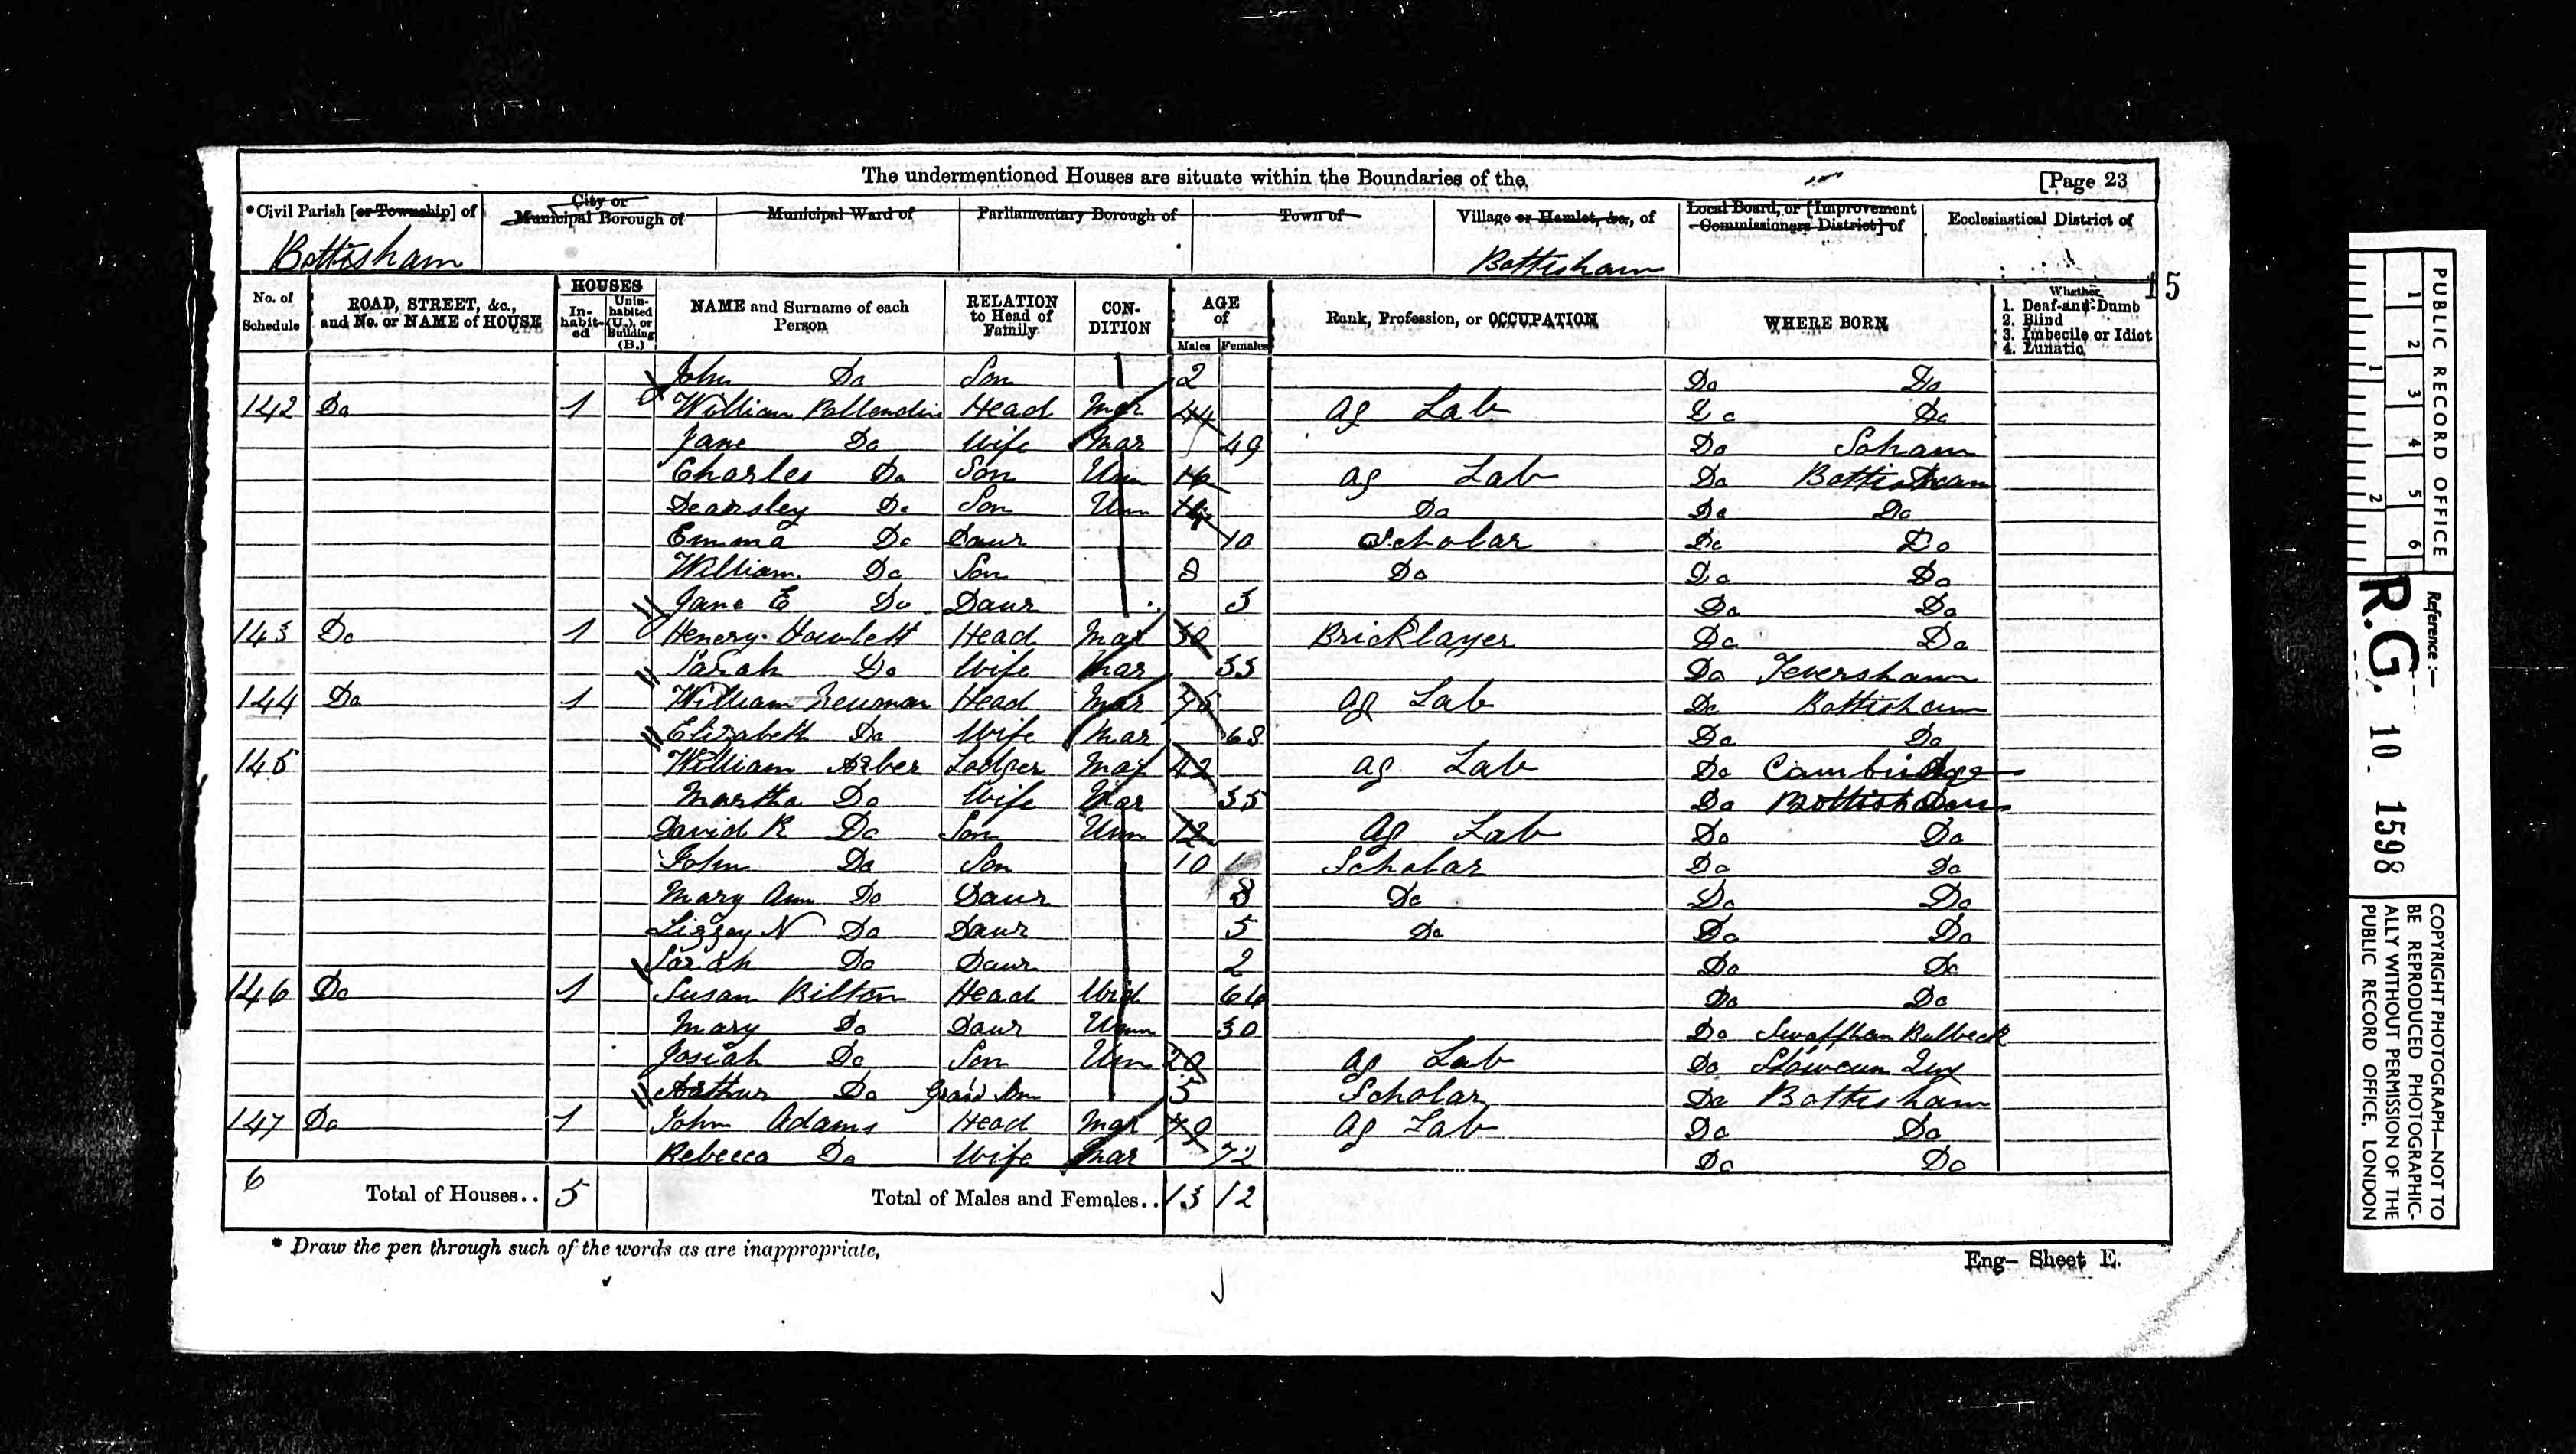 The undermentioned Houses are situate within the Boundaries of the [Page 23
*Civil Parish [or Township] of City or Municipal Borough of Municipal Ward of Parliamentary Borough of Town of Village or Hamlet, &c., of Local Board, or [Improvement Commissioners District] of Ecclesiastical District of
Bottisham Bottisham
15
No. of Schedule ROAD, STREET, &c., and No. or NAME of HOUSE HOUSES Inhabited Uninhabited (U.), or Building (B.) NAME and Surname of each Person RELATION to Head of Family CONDITION AGE of Males Females Rank, Profession, or OCCUPATION WHERE BORN Whether 1. Deaf-and-Dumb 2. Blind 3. Imbecile or Idiot 4. Lunatic
John Do Son 2 Do Do
142 Do 1 William Head Mar 44 Ag Lab Do Do
Jane Do Wife Mar 49 Do Soham
Charles Do Son Unm Ag Lab Do Bottisham
Dearsley Do Son Unm Do Do Do
Emma Do Daur 10 Scholar Do Do
William Do Son 8 Do Do Do
Jane E Do Daur Do Do
143 Do 1 Henery Howlett Head Mar Bricklayer Do Do
Sarah Do Wife Mar Do Teversham
144 Do 1 William Newman Head Mar Ag Lab Do Bottisham
Elizabeth Do Wife Mar 68 Do Do
145 William Arber Lodger Mar 42 Ag Lab Do Cambridge
Martha Do Wife Mar 35 Do Bottisham
David R Do Son Unm 12 Ag Lab Do Do
John Do Son 10 Scholar Do Do
Mary Ann Do Daur 8 Do Do Do
Lizzey N Do Daur 5 Do Do Do
Sarah Do Daur 2 Do Do
146 Do 1 Susan Bilton Head Wid 64 Do Do
Mary Do Daur Unm 30 Do Swaffham Bulbeck
Josiah Do Son Unm 20 Ag Lab Do Quy
Arthur Do Grand Son 5 Scholar Do Bottisham
147 Do 1 John Adams Head Mar Ag Lab Do Do
Rebecca Do Wife Mar 72 Do Do
6 Total of Houses.. 5 Total of Males and Females.. 13 12
* Draw the pen through such of the words as are inappropriate.
Eng- Sheet E.
PUBLIC RECORD OFFICE
1 2 3 4 5 6
1 2
Reference :-
R.G. 10 1598
COPYRIGHT PHOTOGRAPH—NOT TO
BE REPRODUCED PHOTOGRAPHIC-
ALLY WITHOUT PERMISSION OF THE
PUBLIC RECORD OFFICE, LONDON